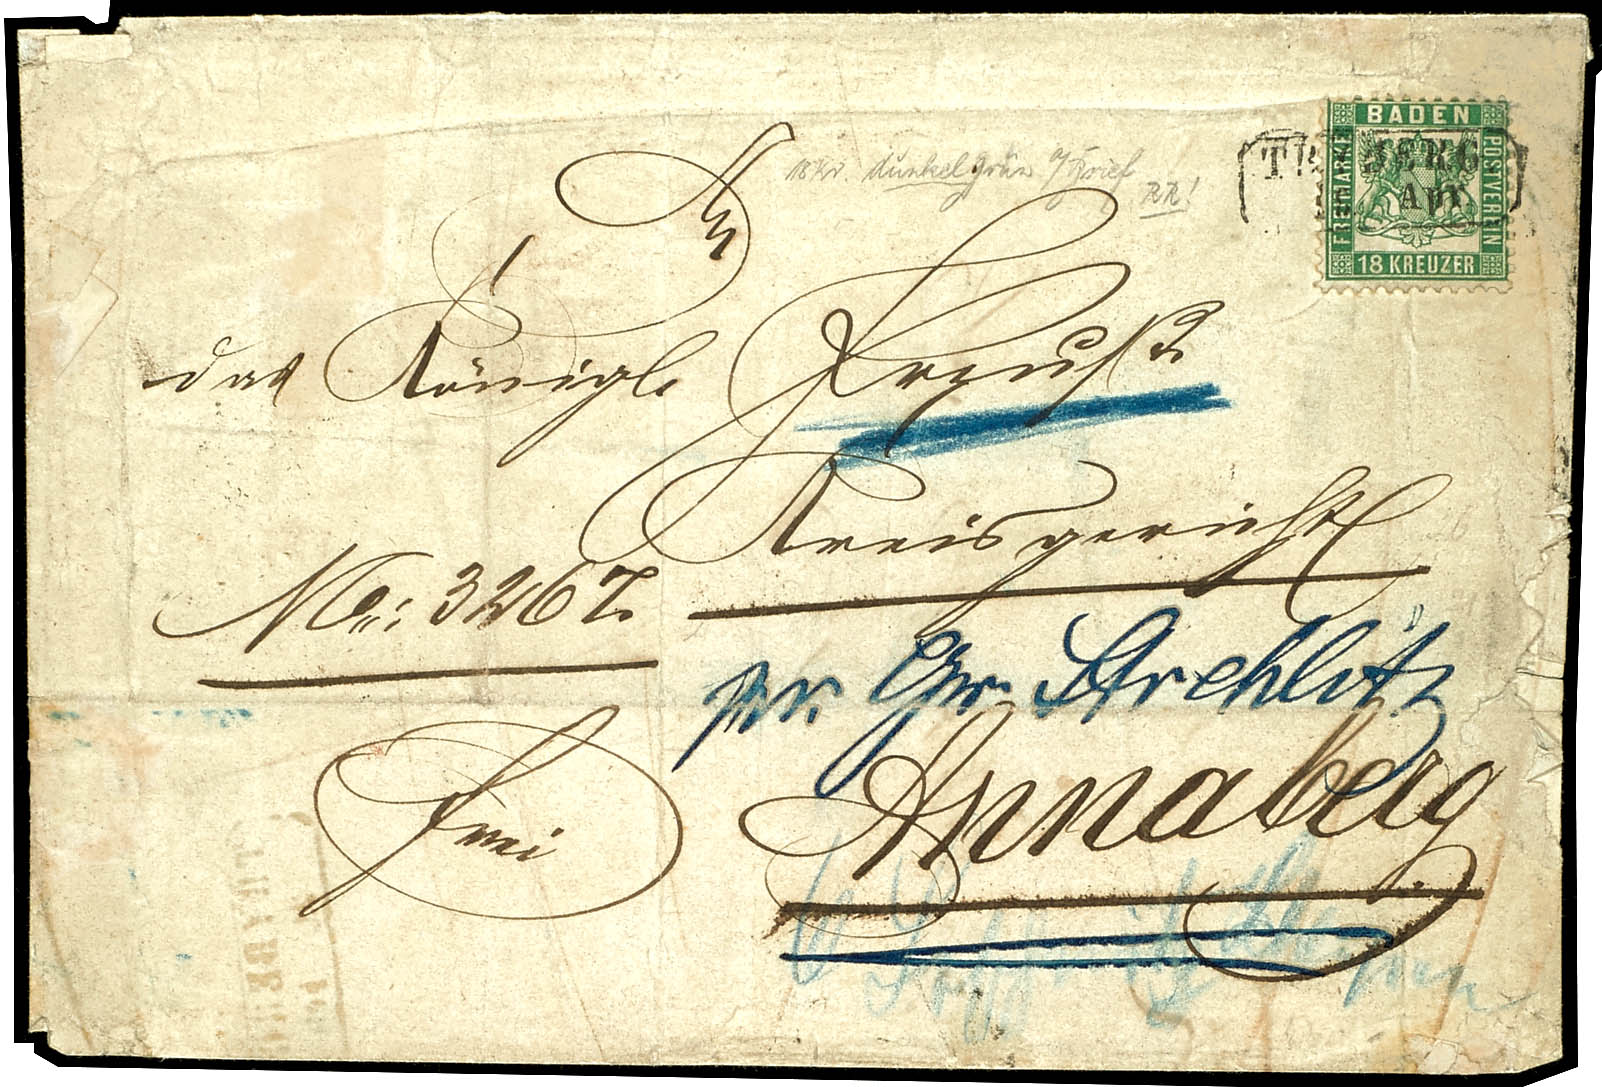 BADEN
FREIMARKE
POSTVEREIN
18 KREUZER
TRYBERG
Apr.
18 Kr dunkelgrün a/Brief
RR!
An
das Königl. Preuß.
Kreisgericht
No: 3267.
pr. Gr. Strehlitz
Frei
Annaberg